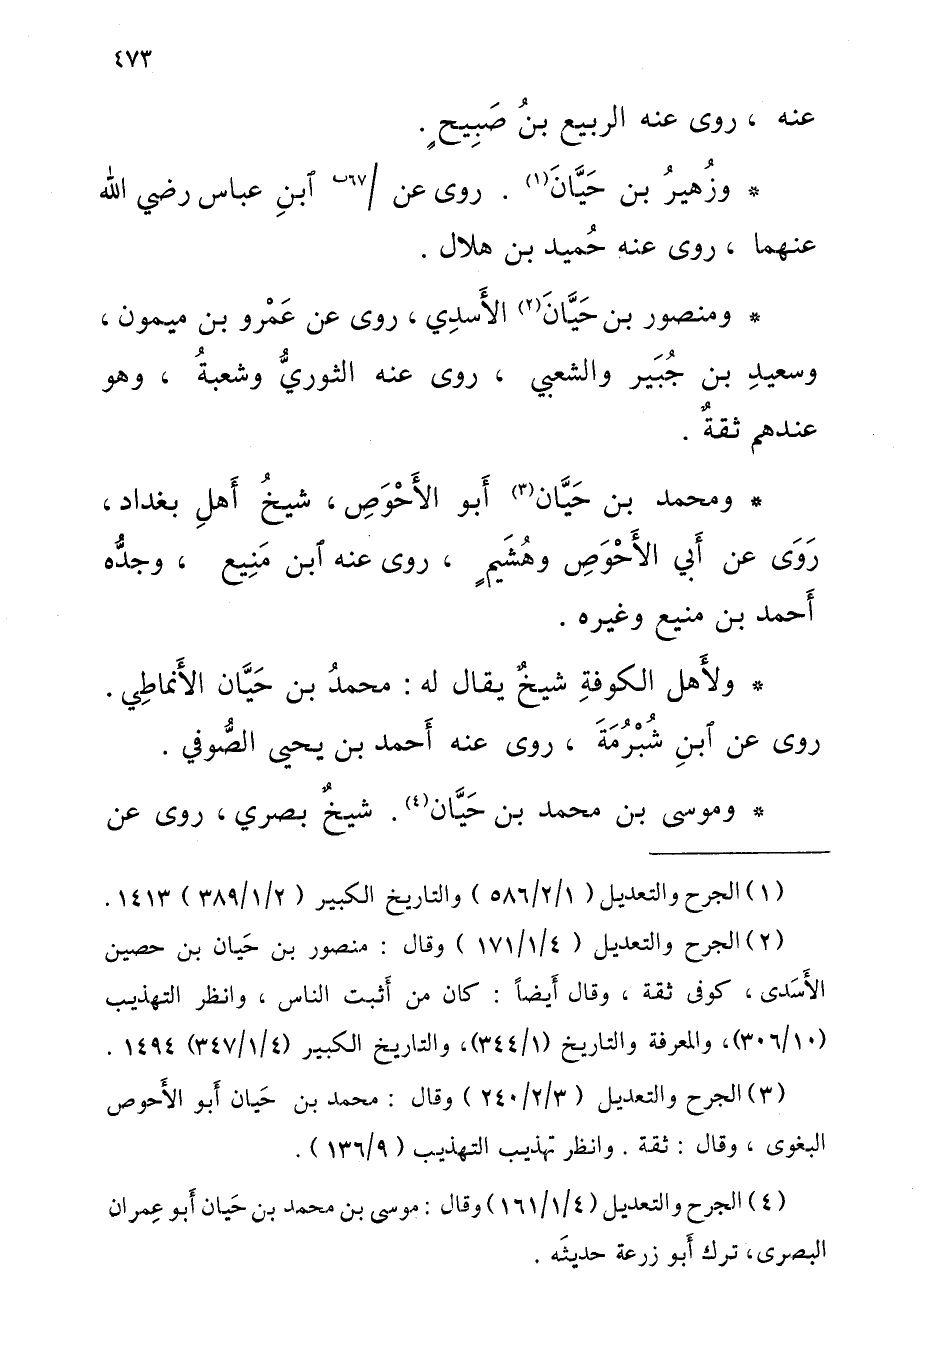 ٤٧٣
عنه ، روى عنه الربيع بنُ صَبِيحٍ .
* وزُهيرُ بن حَيَّانَ(١) . روى عن /٦٧ب ٱبنِ عباس رضي الله
عنهما ، روى عنه حُميد بن هلال .
* ومنصور بن حَيَّانَ(٢) الأَسدِي ، روى عن عَمْرو بن ميمون ،
وسعيدِ بن جُبَير والشعبي ، روى عنه الثوريُّ وشعبةُ ، وهو
عندهم ثقةٌ .
* ومحمد بن حَيَّان(٣) أَبو الأَحْوَصِ ، شيخُ أَهلِ بغداد ،
رَوَى عن أَبي الأَحْوَصِ وهُشَيمٍ ، روى عنه ٱبن مَنِيع ، وجدُّه
أَحمد بن منيع وغيره .
* ولأَهل الكوفةِ شيخٌ يقال له : محمدُ بن حَيَّان الأَنماطِي .
روى عن ٱبنِ شُبْرُمَةَ ، روى عنه أَحمد بن يحيى الصُّوفي .
* وموسى بن محمد بن حَيَّان(٤) . شيخٌ بصري ، روى عن
(١) الجرح والتعديل ( ٥٨٦/٢/١ ) والتاريخ الكبير ( ٣٨٩/١/٢ ) ١٤١٣ .
(٢) الجرح والتعديل ( ١٧١/١/٤ ) وقال : منصور بن حَيان بن حصين
الأَسَدى ، كوفى ثقة ، وقال أَيضاً : كان من أَثبت الناس ، وانظر التهذيب
(٣٠٦/١٠)، والمعرفة والتاريخ (٣٤٤/١)، والتاريخ الكبير (٣٤٧/١/٤) ١٤٩٤ .
(٣) الجرح والتعديل ( ٢٤٠/٢/٣ ) وقال : محمد بن حَيان أَبو الأَحوص
البغوى ، وقال : ثقة . وانظر تهذيب التهذيب ( ١٣٦/٩ ) .
(٤) الجرح والتعديل (١٦١/١/٤) وقال : موسى بن محمد بن حَيان أَبو عِمران
البصرى، ترك أَبو زرعة حديثَه .